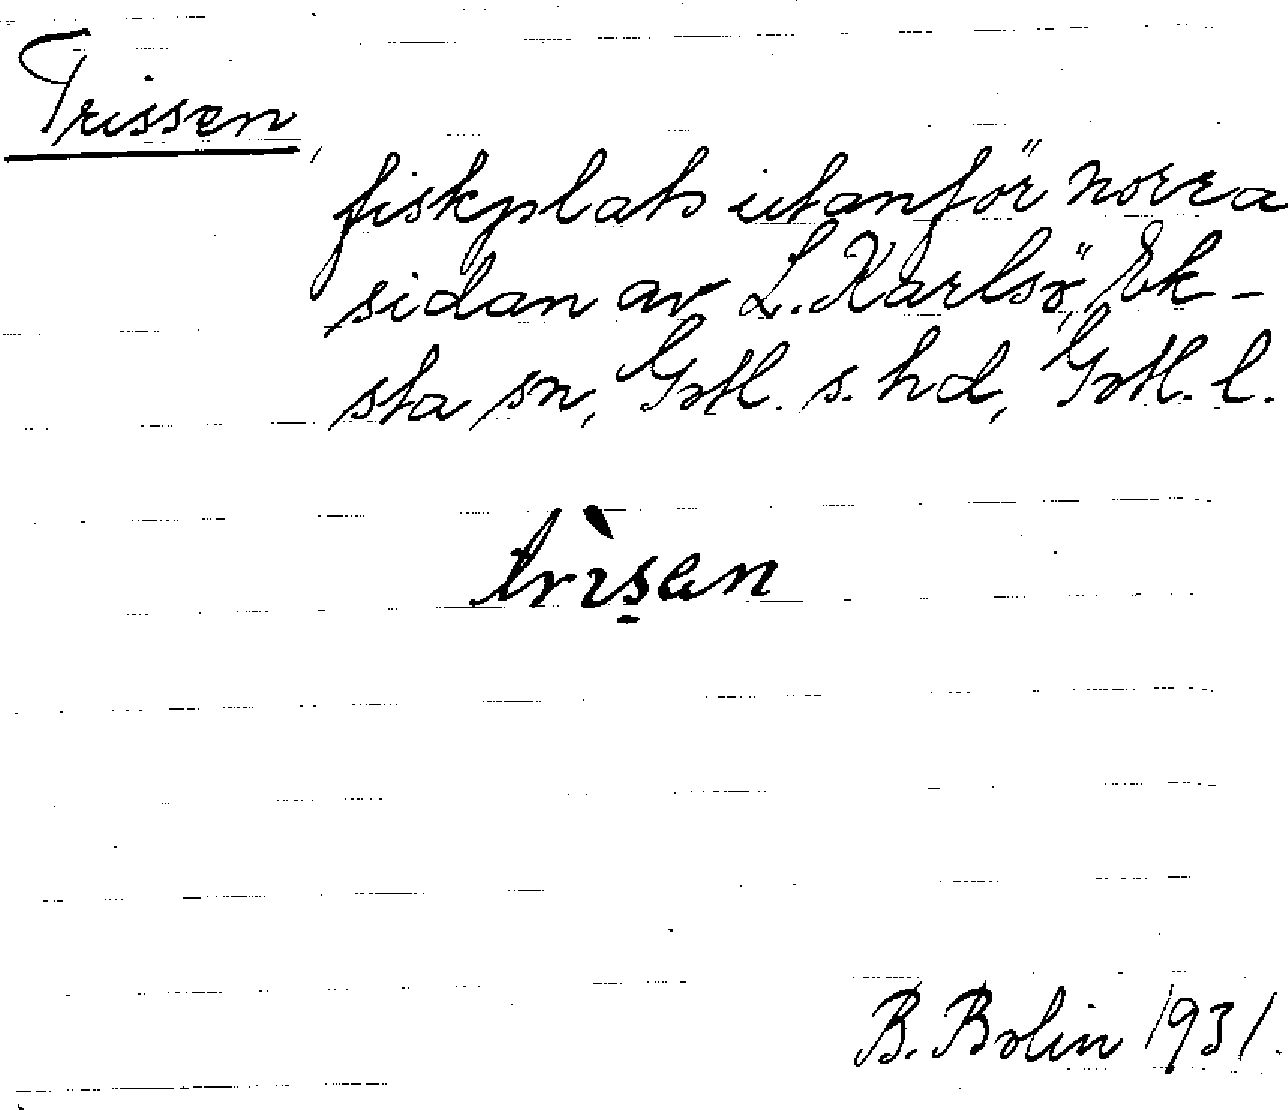 Trissen,
fiskplats utanför norra
sidan av L. Karlsö, Ek-
sta sn, Gotl. s. hd, Gotl. l.
trìsạn
B. Bolin 1931.